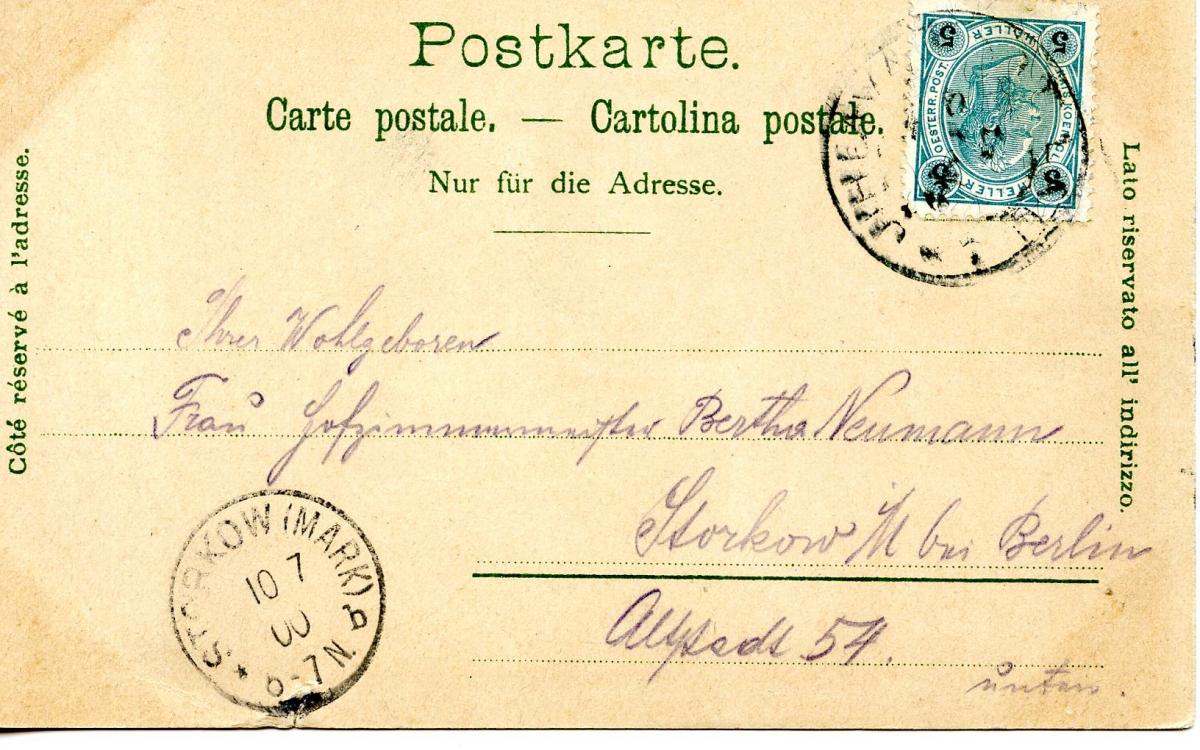 Postkarte.
Carte postale. — Cartolina postale.
Nur für die Adresse.
Côté réservé à l'adresse.
Lato riservato all' indirizzo.
5 5
OESTERR. POST.
HELLER
Ihrer Wohlgeboren
Frau Hofzimmermeister Bertha Neumann
Storkow M bei Berlin
Altstadt 54.
unten.
* STORKOW (MARK) b
10 7
00
6-7N.